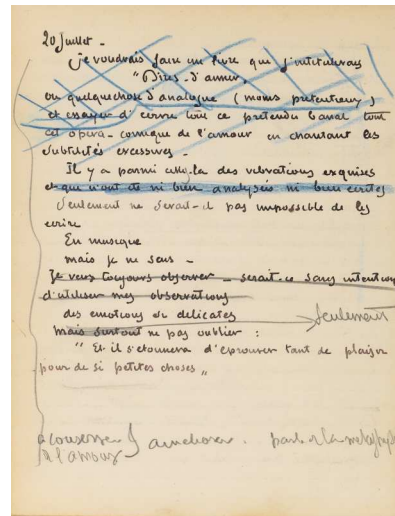 20 Juillet -
Je voudrais faire un livre que j'intitulerais
"Dires d'aimer,
ou quelque chose d'analogue (moins pretentieux)
et essayer d'ecrire tout ce pretendu banal tout
cet opera-comique de l'amour en chantant les
subtilités excessives -
Il y a parmi cela des vibrations exquises
et qui n'ont été ni bien analysées ni bien ecrites
Seulement ne serait-il pas impossible de les
ecrire
En musique
mais je ne sais -
Je veux toujours observer - serait-ce sans intention
d'utiliser mes observations
des emotions si delicates
Seulement
mais surtout ne pas oublier :
"Et il s'etonnera d'eprouver tant de plaisir
pour de si petites choses"
a conserver
à l'amour
ameliorer. parler de la